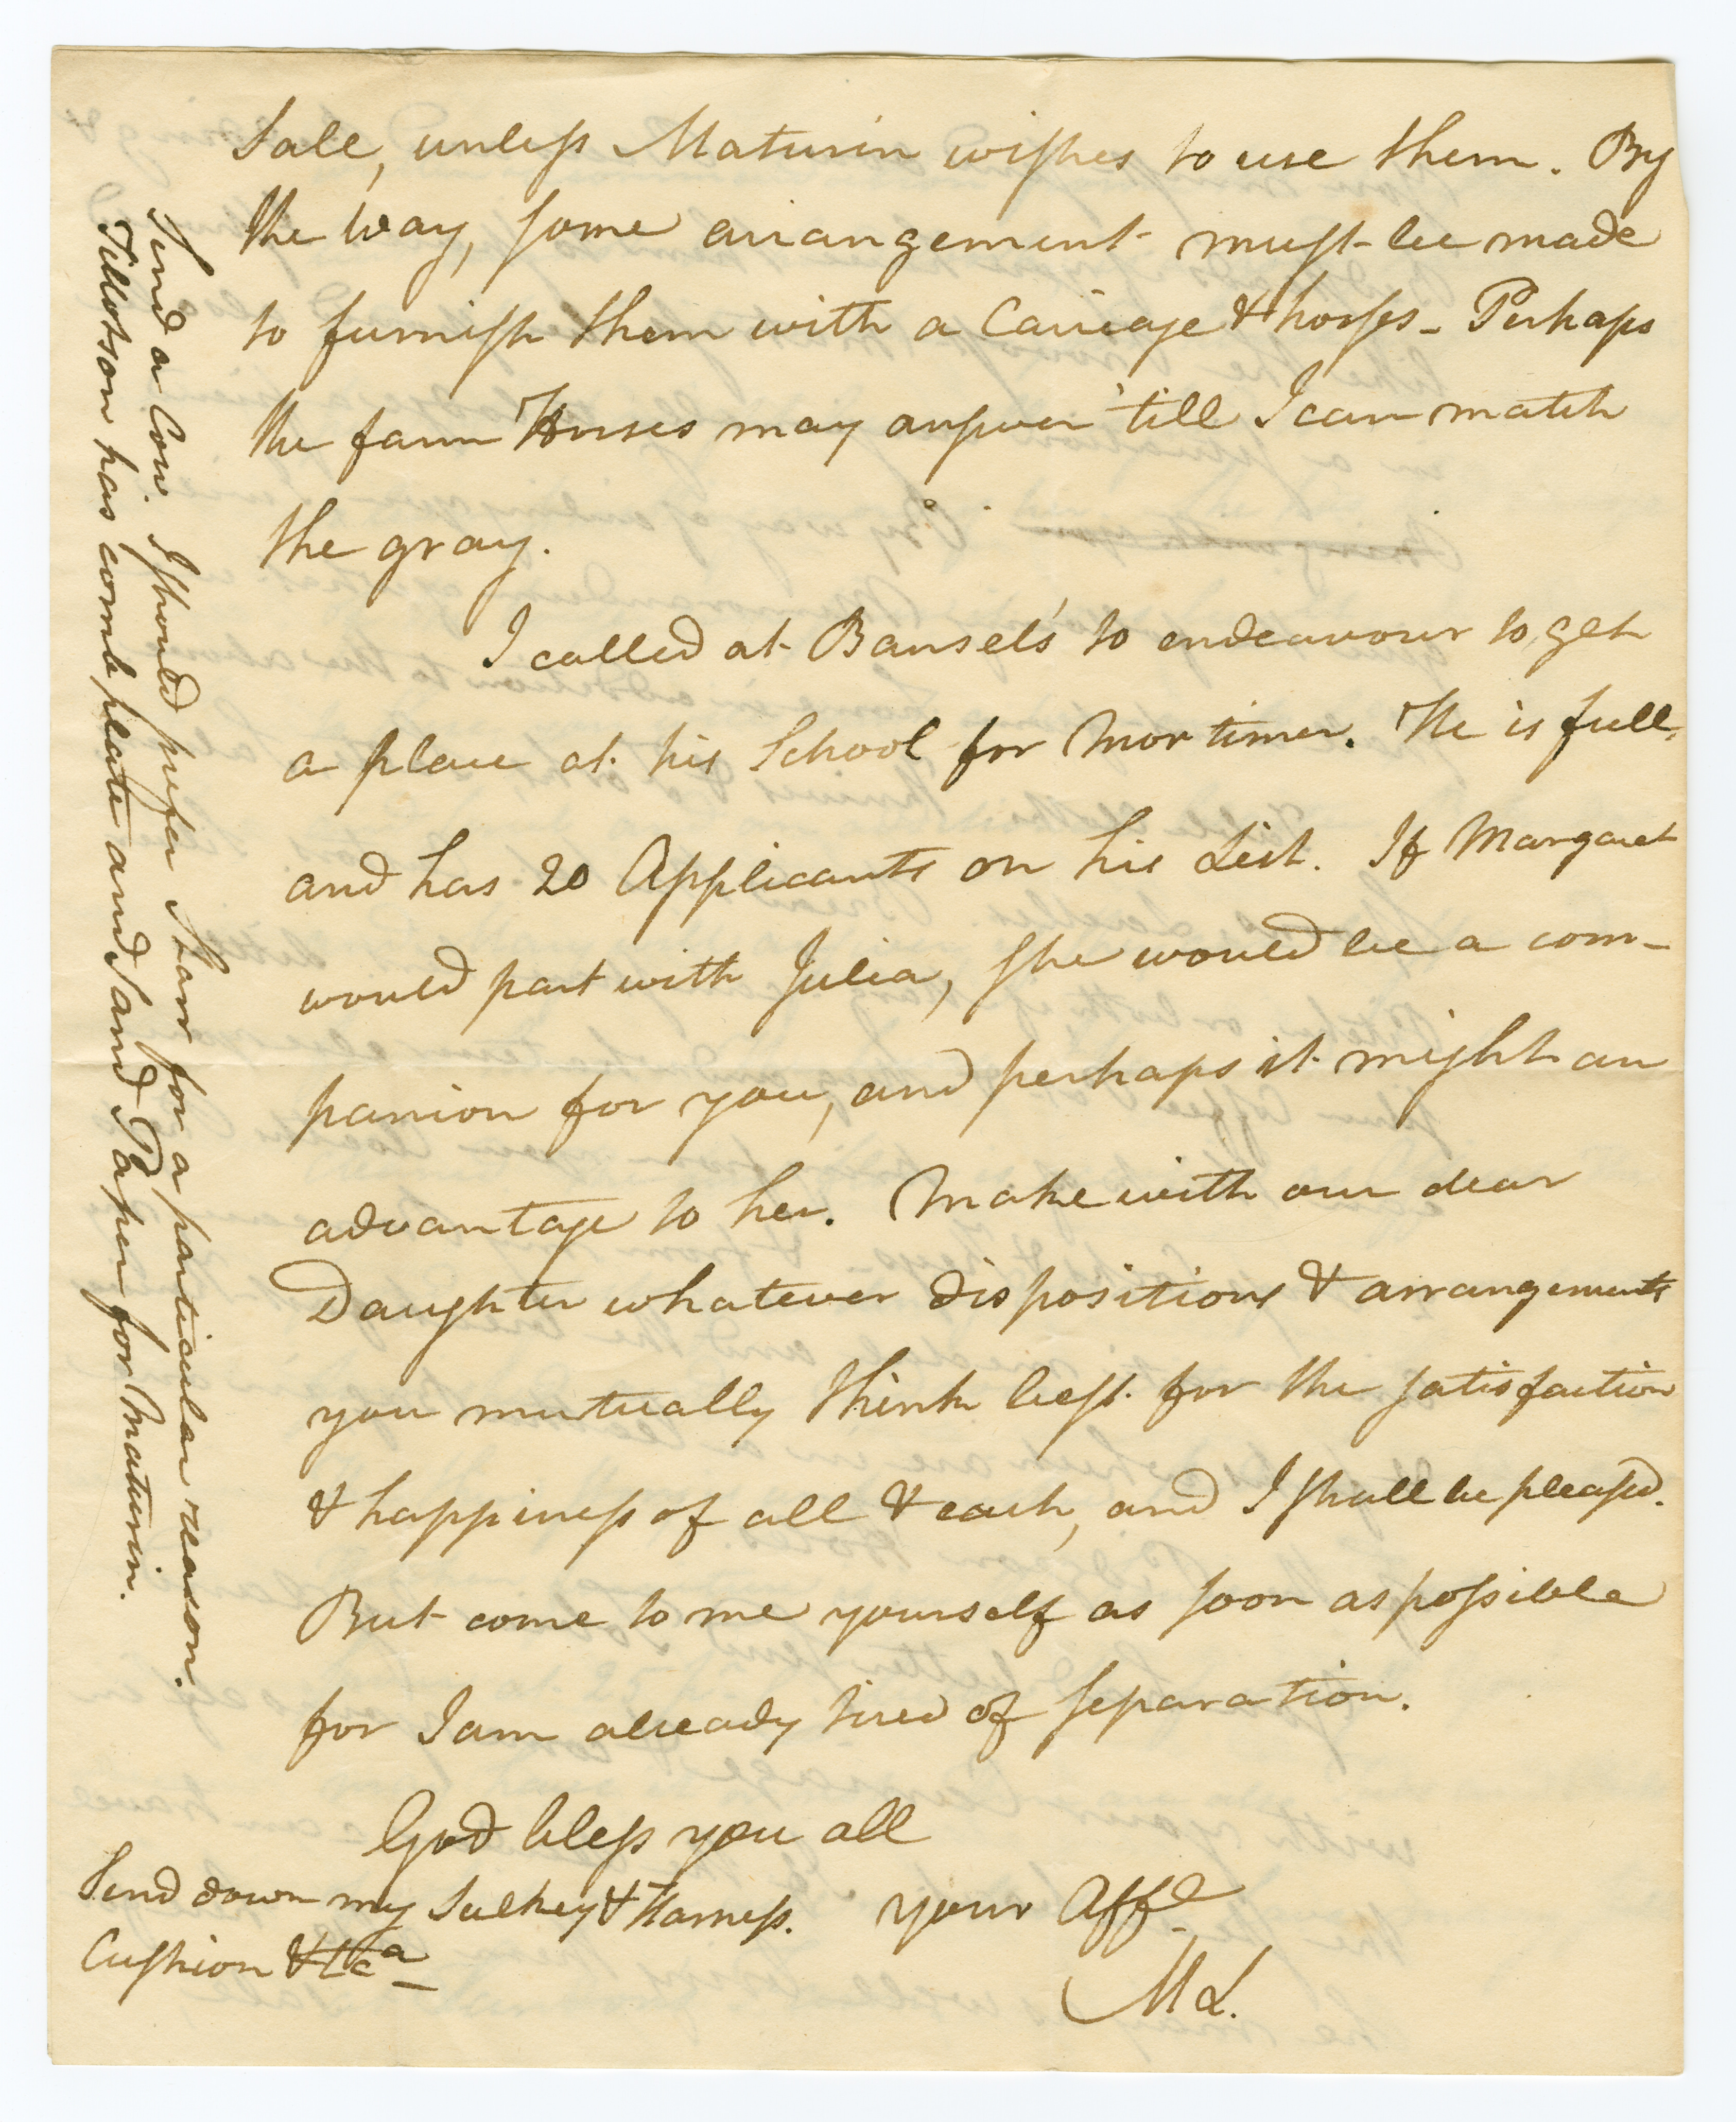 Sale, unless Maturin wishes to use them. By
the way, some arrangement must be made
to furnish them with a Carriage & horses – Perhaps
the farm Horses may answer 'till I can match
the gray.
I called at Bansel's to endeavour to get
a place at his School for Mortimer. He is full,
and has 20 Applicants on his List. If Margaret
would part with Julia, she would be a com-
panion for you, and perhaps it might an
advantage to her. Make with our dear
Daughter whatever dispositions & arrangements
you mutually think best for the satisfaction
& happiness of all & each, and I shall be pleased.
But come to me yourself as soon as possible
for I am already tired of separation.
God bless you all
your Affe
ML.
Send down my Sulkey & Harness.
Cushion &ca
Send a Cow. I should prefer Starr for a particular reason.
Tillotson has comb plate and Sand Paper for Maturin.